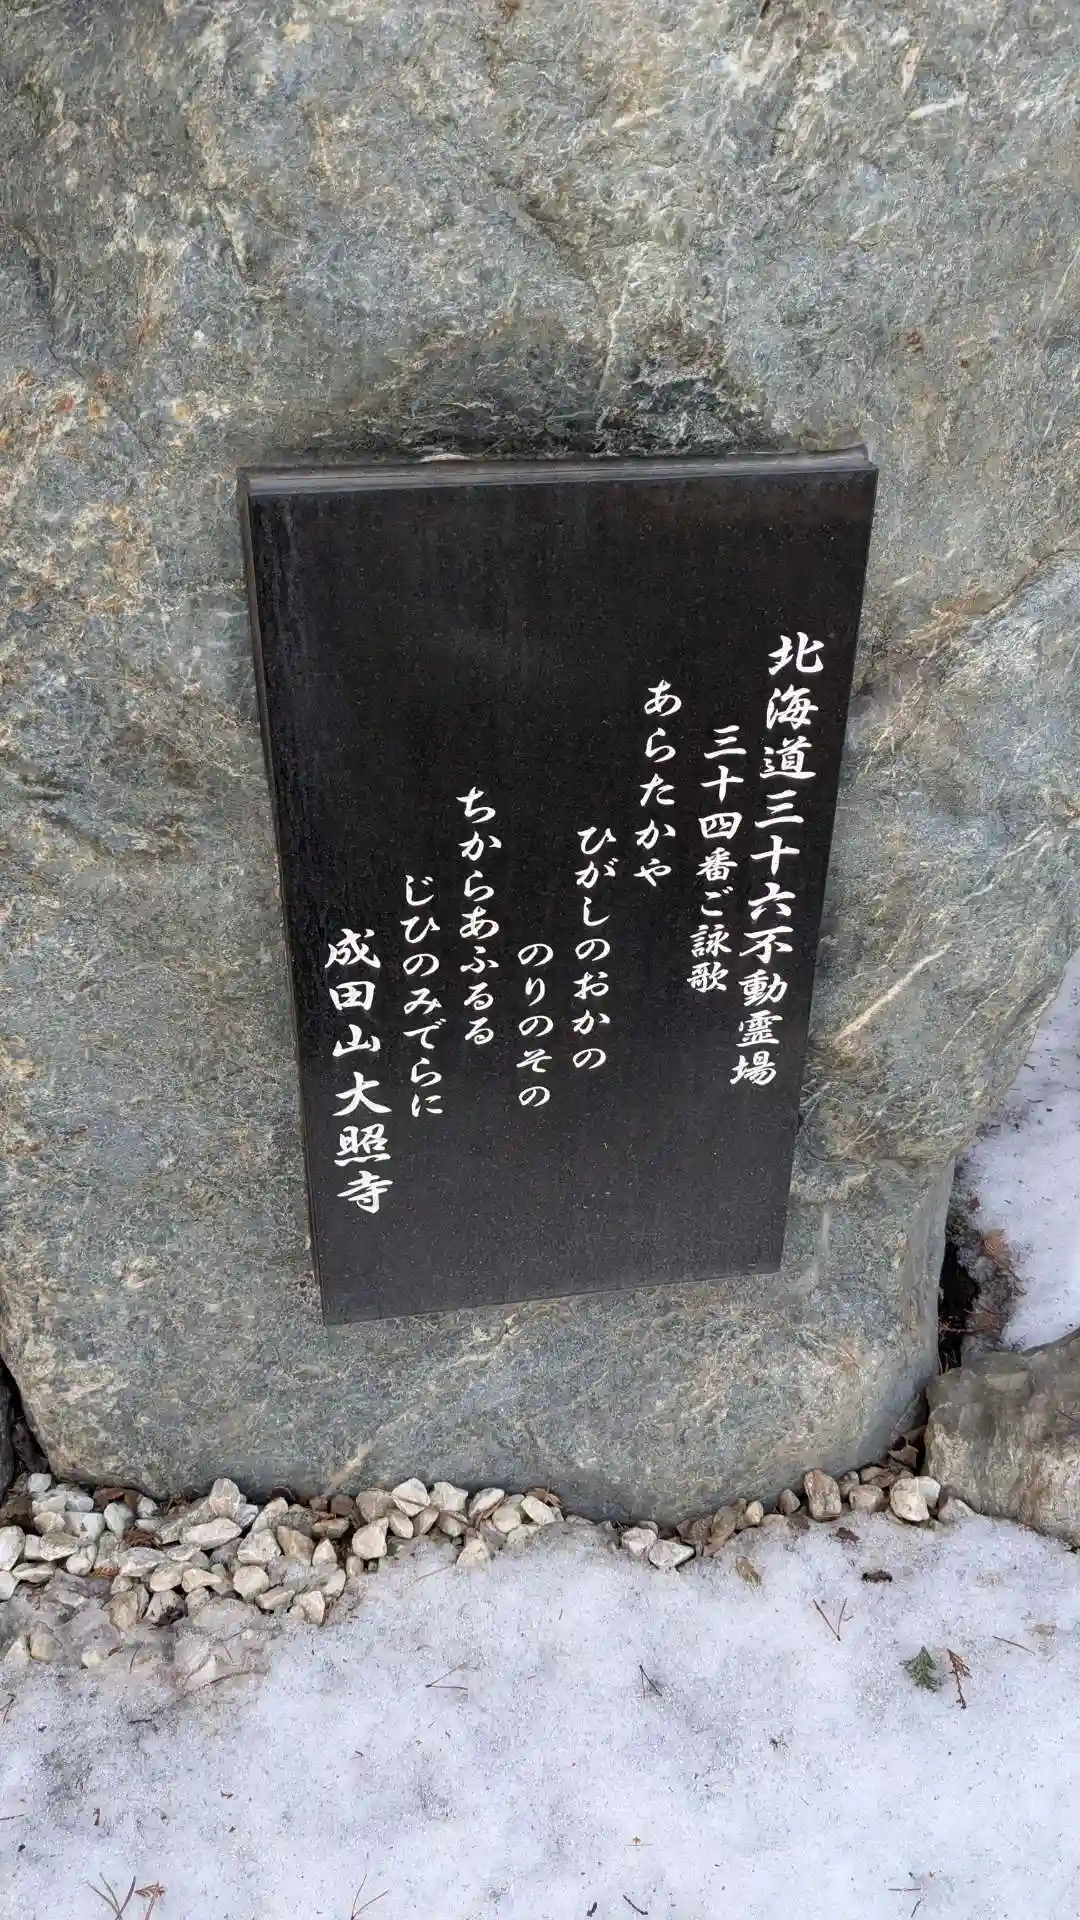 北海道三十六不動霊場
三十四番ご詠歌
あらたかや
ひがしのおかの
のりのその
ちからあふるる
じひのみでらに
成田山大照寺